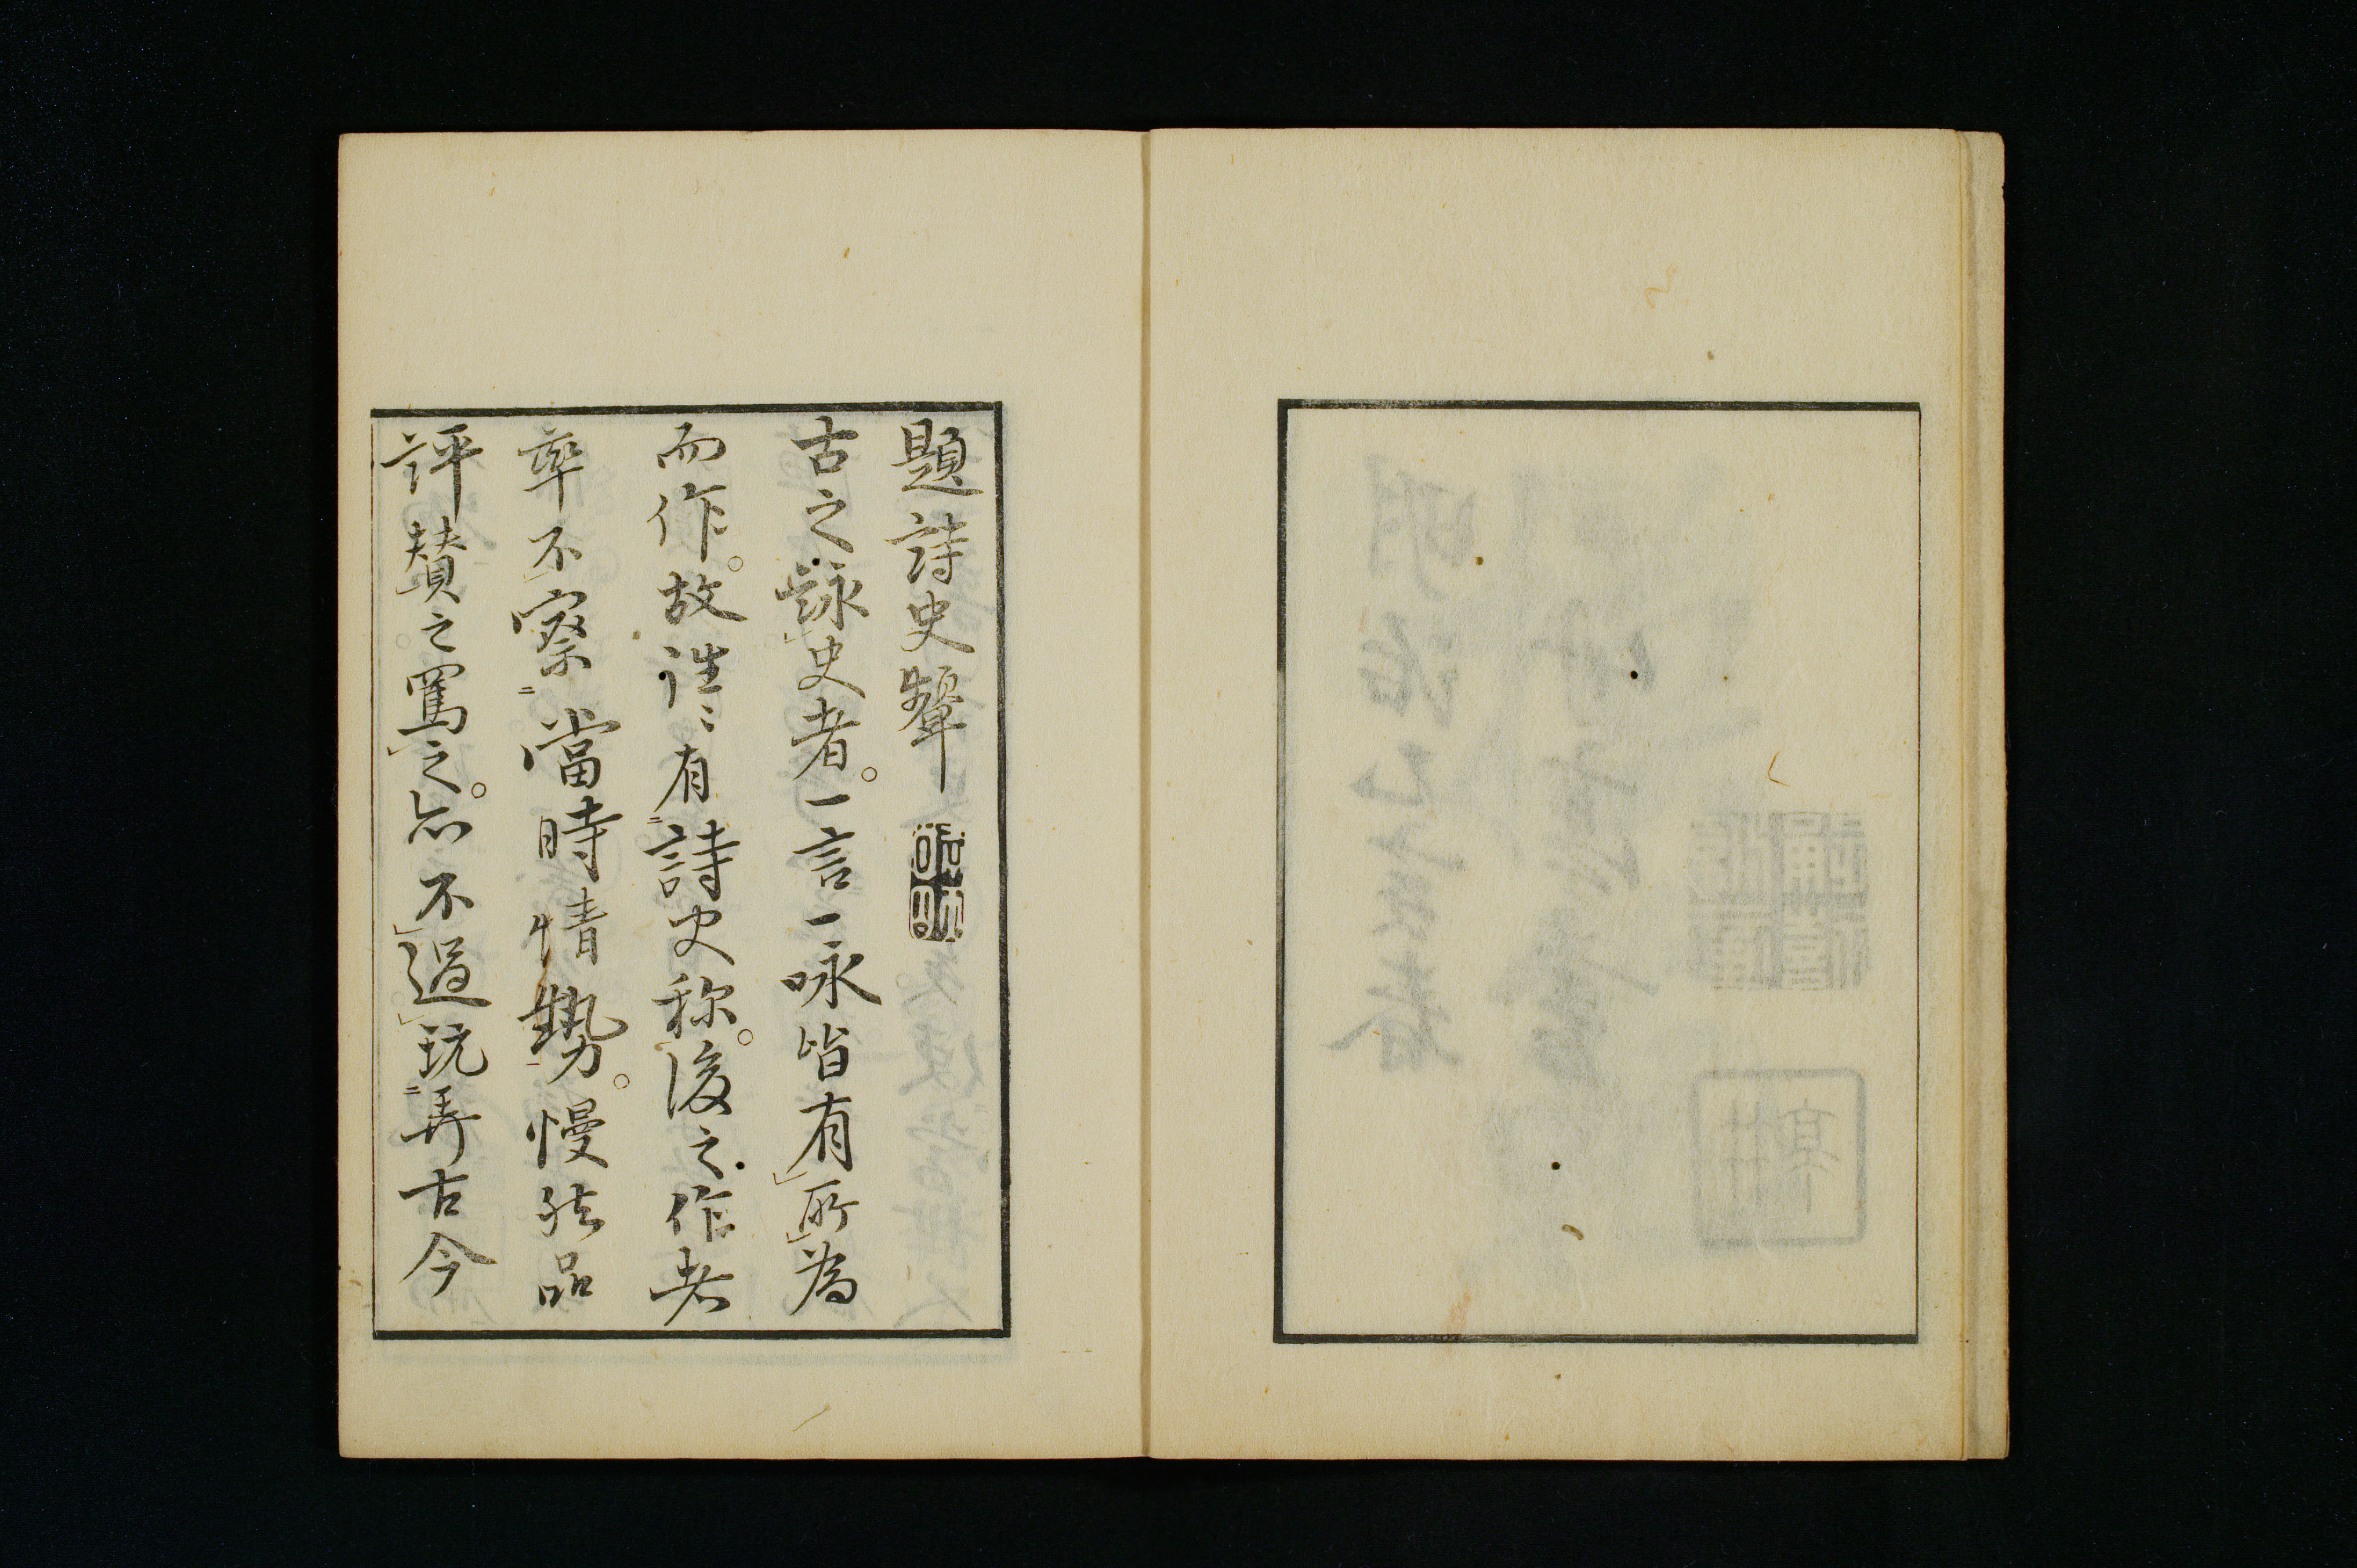 題詩史顰
古之詠史者。一言一咏皆有所為
而作。故往〻有詩史称。後之作者
率不察當時情勢。慢然品
評賛之罵之。亦不過玩弄古今